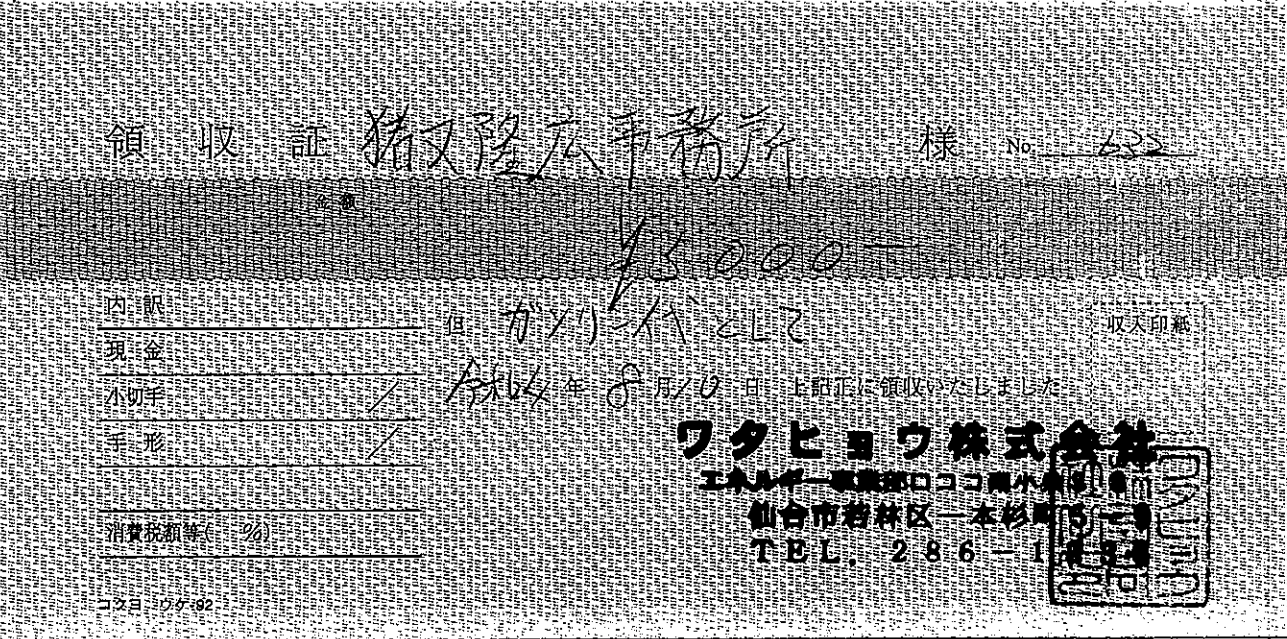 領収証 猪又隆広事務所 様 No. 632
金額
¥5,000-
内訳
現金
小切手 /
手形 /
消費税額等( %)
但 ガソリン代として
収入印紙
令和4年8月10日 上記正に領収いたしました
ワタヒョウ株式会社
エネルギー事業部ロココ南小
仙台市若林区一本杉町
TEL. 286-1
コクヨ ウケ-92